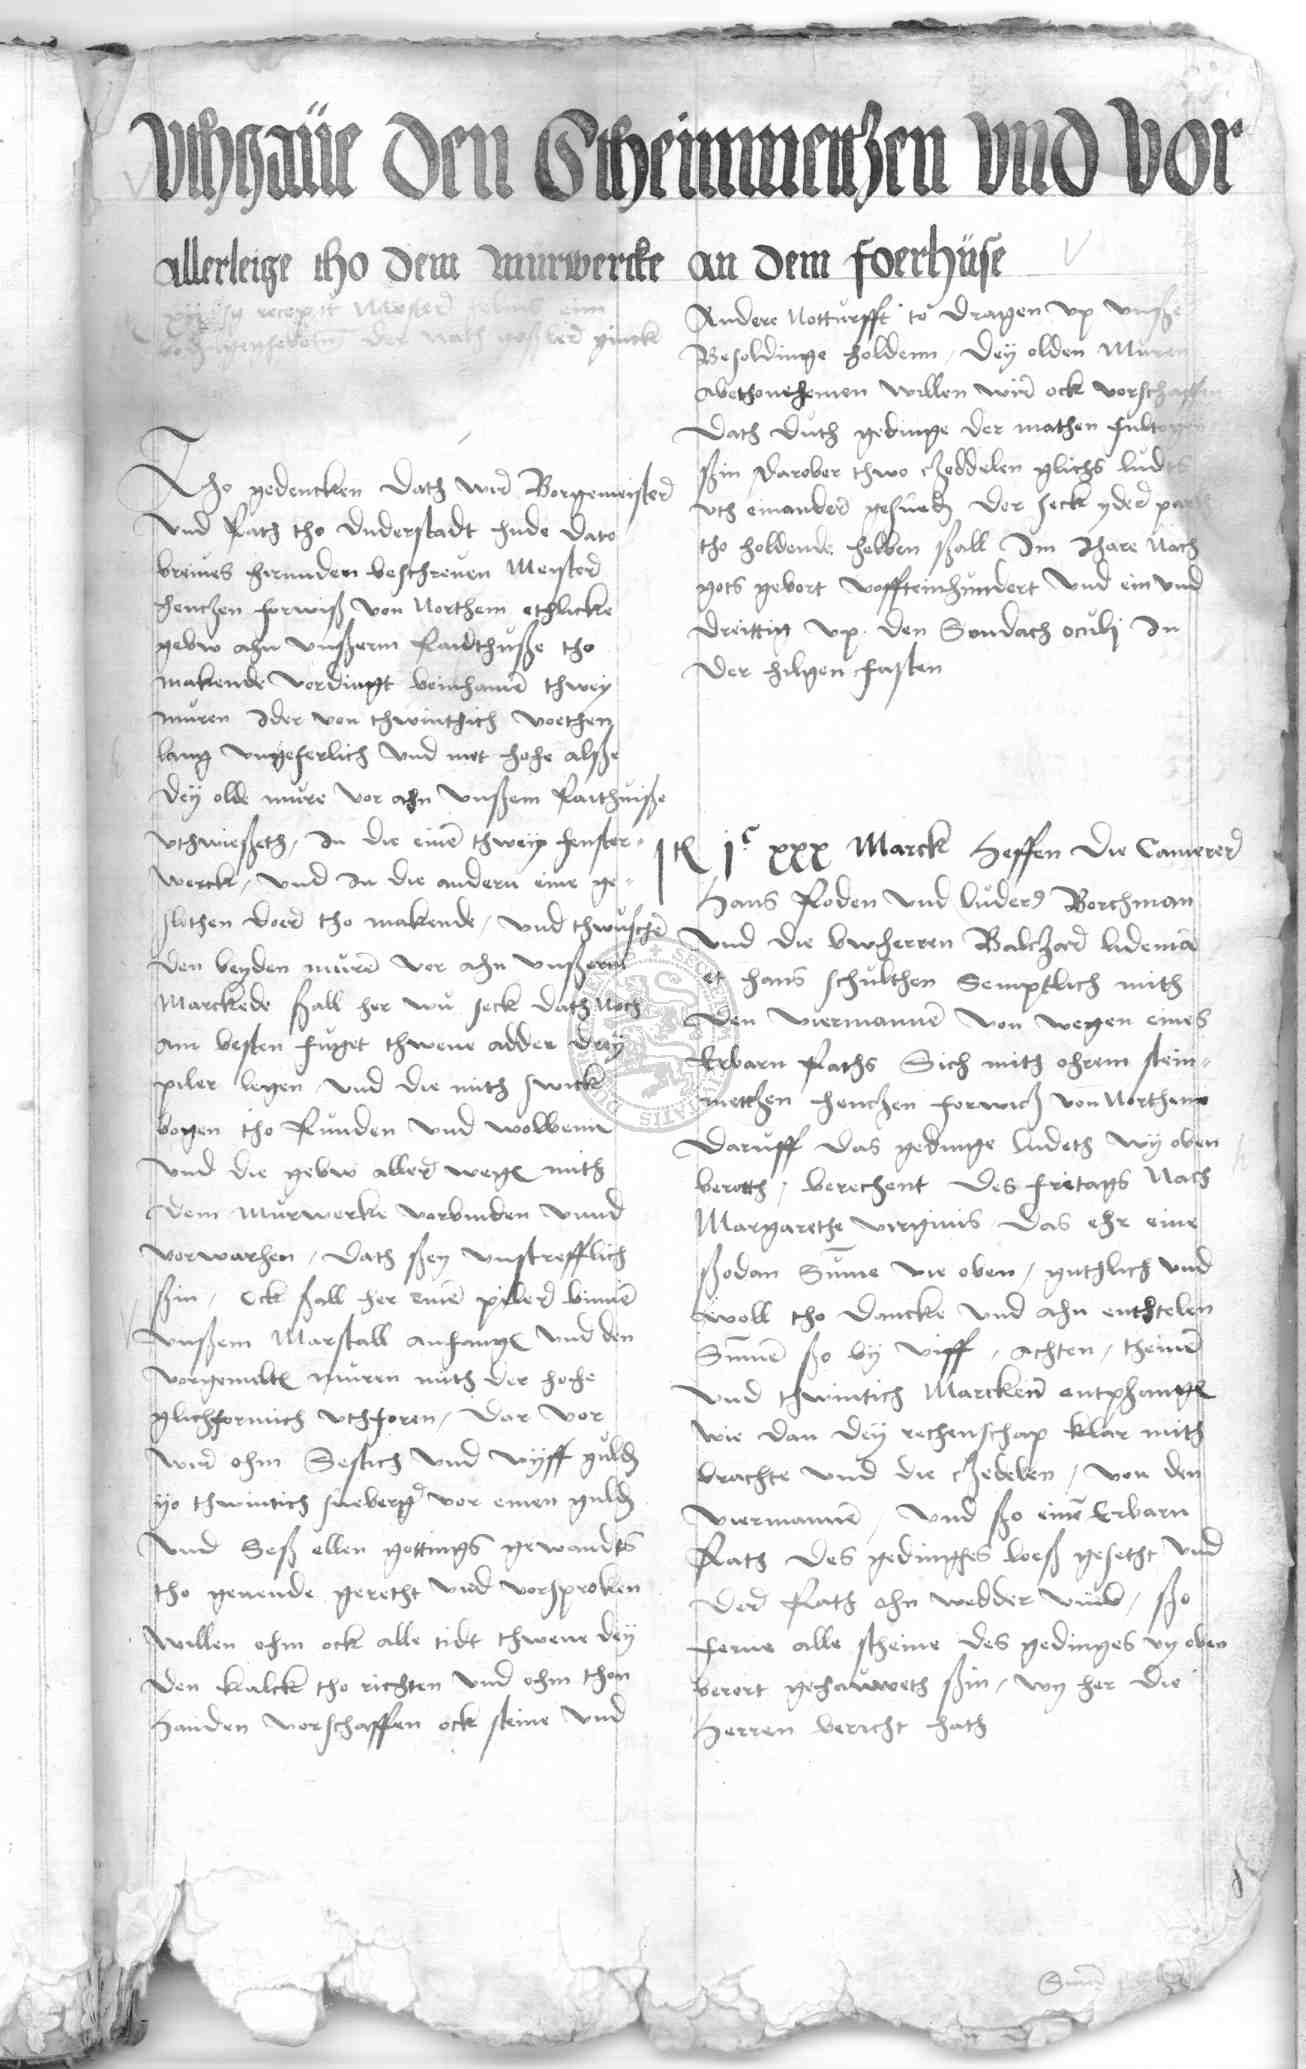 Uthgaue den Stheimmetzen vnd vor
allerleige tho dem murwercke an dem foerhuse
recepit Meister
der Rath
Tho gedencken dath wir Borgemeyster
vnd Rath tho Duderstadt hude dato
breiues hirunden beschreuen Meyster
Henchen forwiß von Northem ethlicke
gebw ahn vnßerm Raidthuße tho
makende vordingt beinhamen thwey
muren Ider von thwintich voethen
lang vngeferlich vnd met hohe alße
dey olde mure vor ahn vnßem Raithuiße
vthwießeth, In die einen thwey fenster-
werck, vnd In die andern eine ge-
slothen doer tho makende, vnd thwuschen
den beyden muren vor ahn vnßerm
Marckede ßall her wu seck dath Noch
am besten fuget thwene adder drey
piler legen, vnd die mith swick
bogen tho Runden vnd wolbenn
vnd die gebw aller wege mith
dem Murwerke vorbinden vnnd
vorwarhen, dath ßey vnstrefflich
ßin, Ock ßall her einen piler binnen
vnßem Marstall anfange vnd den
vorgemelte muren mith der hohe
glichformich vthforen, dar vor
wir ohm Sestich vnd vyff guld
yo thwintich sneberg vor einen guld
vnd Seß ellen gottings gewandts
tho geuende geretht vnd vorsproken
willen ohm ock alle tidt thwene dey
den kalck tho richten vnd ohm thon
Handen vorschaffen ock steine vnd
Andere Notturfft to dragen vp vnße
Besoldinge holdenn, dey olden Muren
abethonehemen willen wir ock vorschaffen
dath duth gedinge der mathen fultogen
ßin darober thwo czeddelen glichs ludts
vth einander gesneden der seck yder part
tho holdende hebben ßall Im Ihare Nach
gots gebort voffteinhundert vnd ein vnd
dreittig vp den Sondach oculi In
der hilgen fasten
It jc xxx Marck Heffen die Camerer
Hans Roden vnd Luder Borchman
vnd die bwherren Balczar Lideman
et hans schulthen Semptlich mith
den viermannen von wegen eines
Erbarn Raths Sich mith ohrem stein-
metthen Henchen forwich von Northeim
daruff das gedinge ludeth wy oben
berorth, berechent des fritags Nach
Margarethe virginis das ehr eine
ßodan Summe wie oben, guthlich vnd
woll tho dancke vnd ahn enthtelen
Summen ßo by viff, achten, theinen
vnd thwintich Marcken entphange
wie dan dey rechenschap klar mith
brachte vnd die czedelen, von den
viermannen, vnd ßo einen Erbarn
Rath des gedinghes loeß gesetht vnd
der Rath ohn wedder vmb, ßo
ferne alle stheine des gedinges wy oben
berort gehauweth ßin, wy her die
Herren bericht hath
Summ